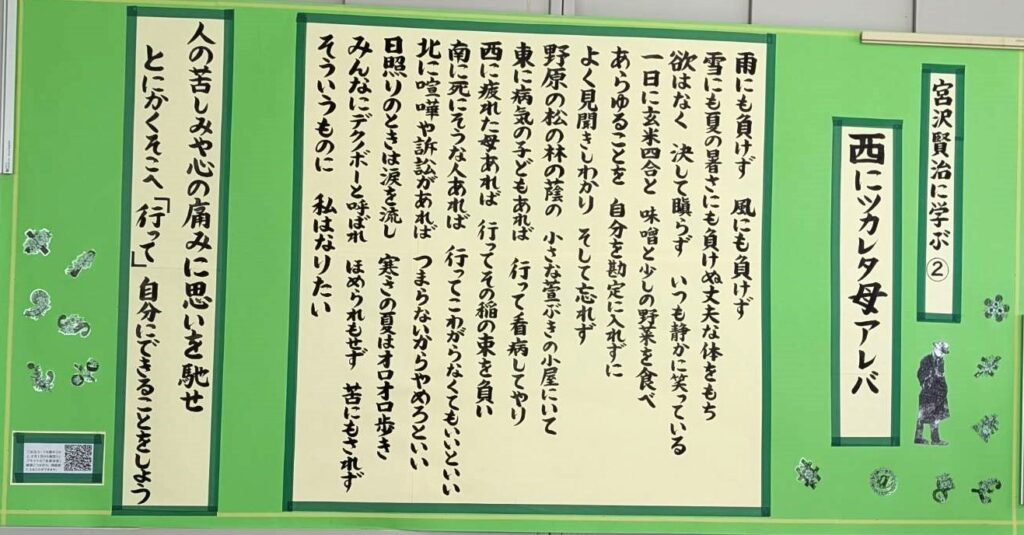 宮沢賢治に学ぶ②
西にツカレタ母アレバ
雨にも負けず 風にも負けず
雪にも夏の暑さにも負けぬ丈夫な体をもち
欲はなく 決して瞋らず いつも静かに笑っている
一日に玄米四合と 味噌と少しの野菜を食べ
あらゆることを 自分を勘定に入れずに
よく見聞きしわかり そして忘れず
野原の松の林の蔭の 小さな萱ぶきの小屋にいて
東に病気の子どもあれば 行って看病してやり
西に疲れた母あれば 行ってその稲の束を負い
南に死にそうな人あれば 行ってこわがらなくてもいいといい
北に喧嘩や訴訟があれば つまらないからやめろといい
日照りのときは涙を流し 寒さの夏はオロオロ歩き
みんなにデクノボーと呼ばれ ほめられもせず 苦にもされず
そういうものに 私はなりたい
人の苦しみや心の痛みに思いを馳せ
とにかくそこへ「行って」自分にできることをしよう